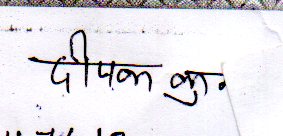 दीपक कु॰